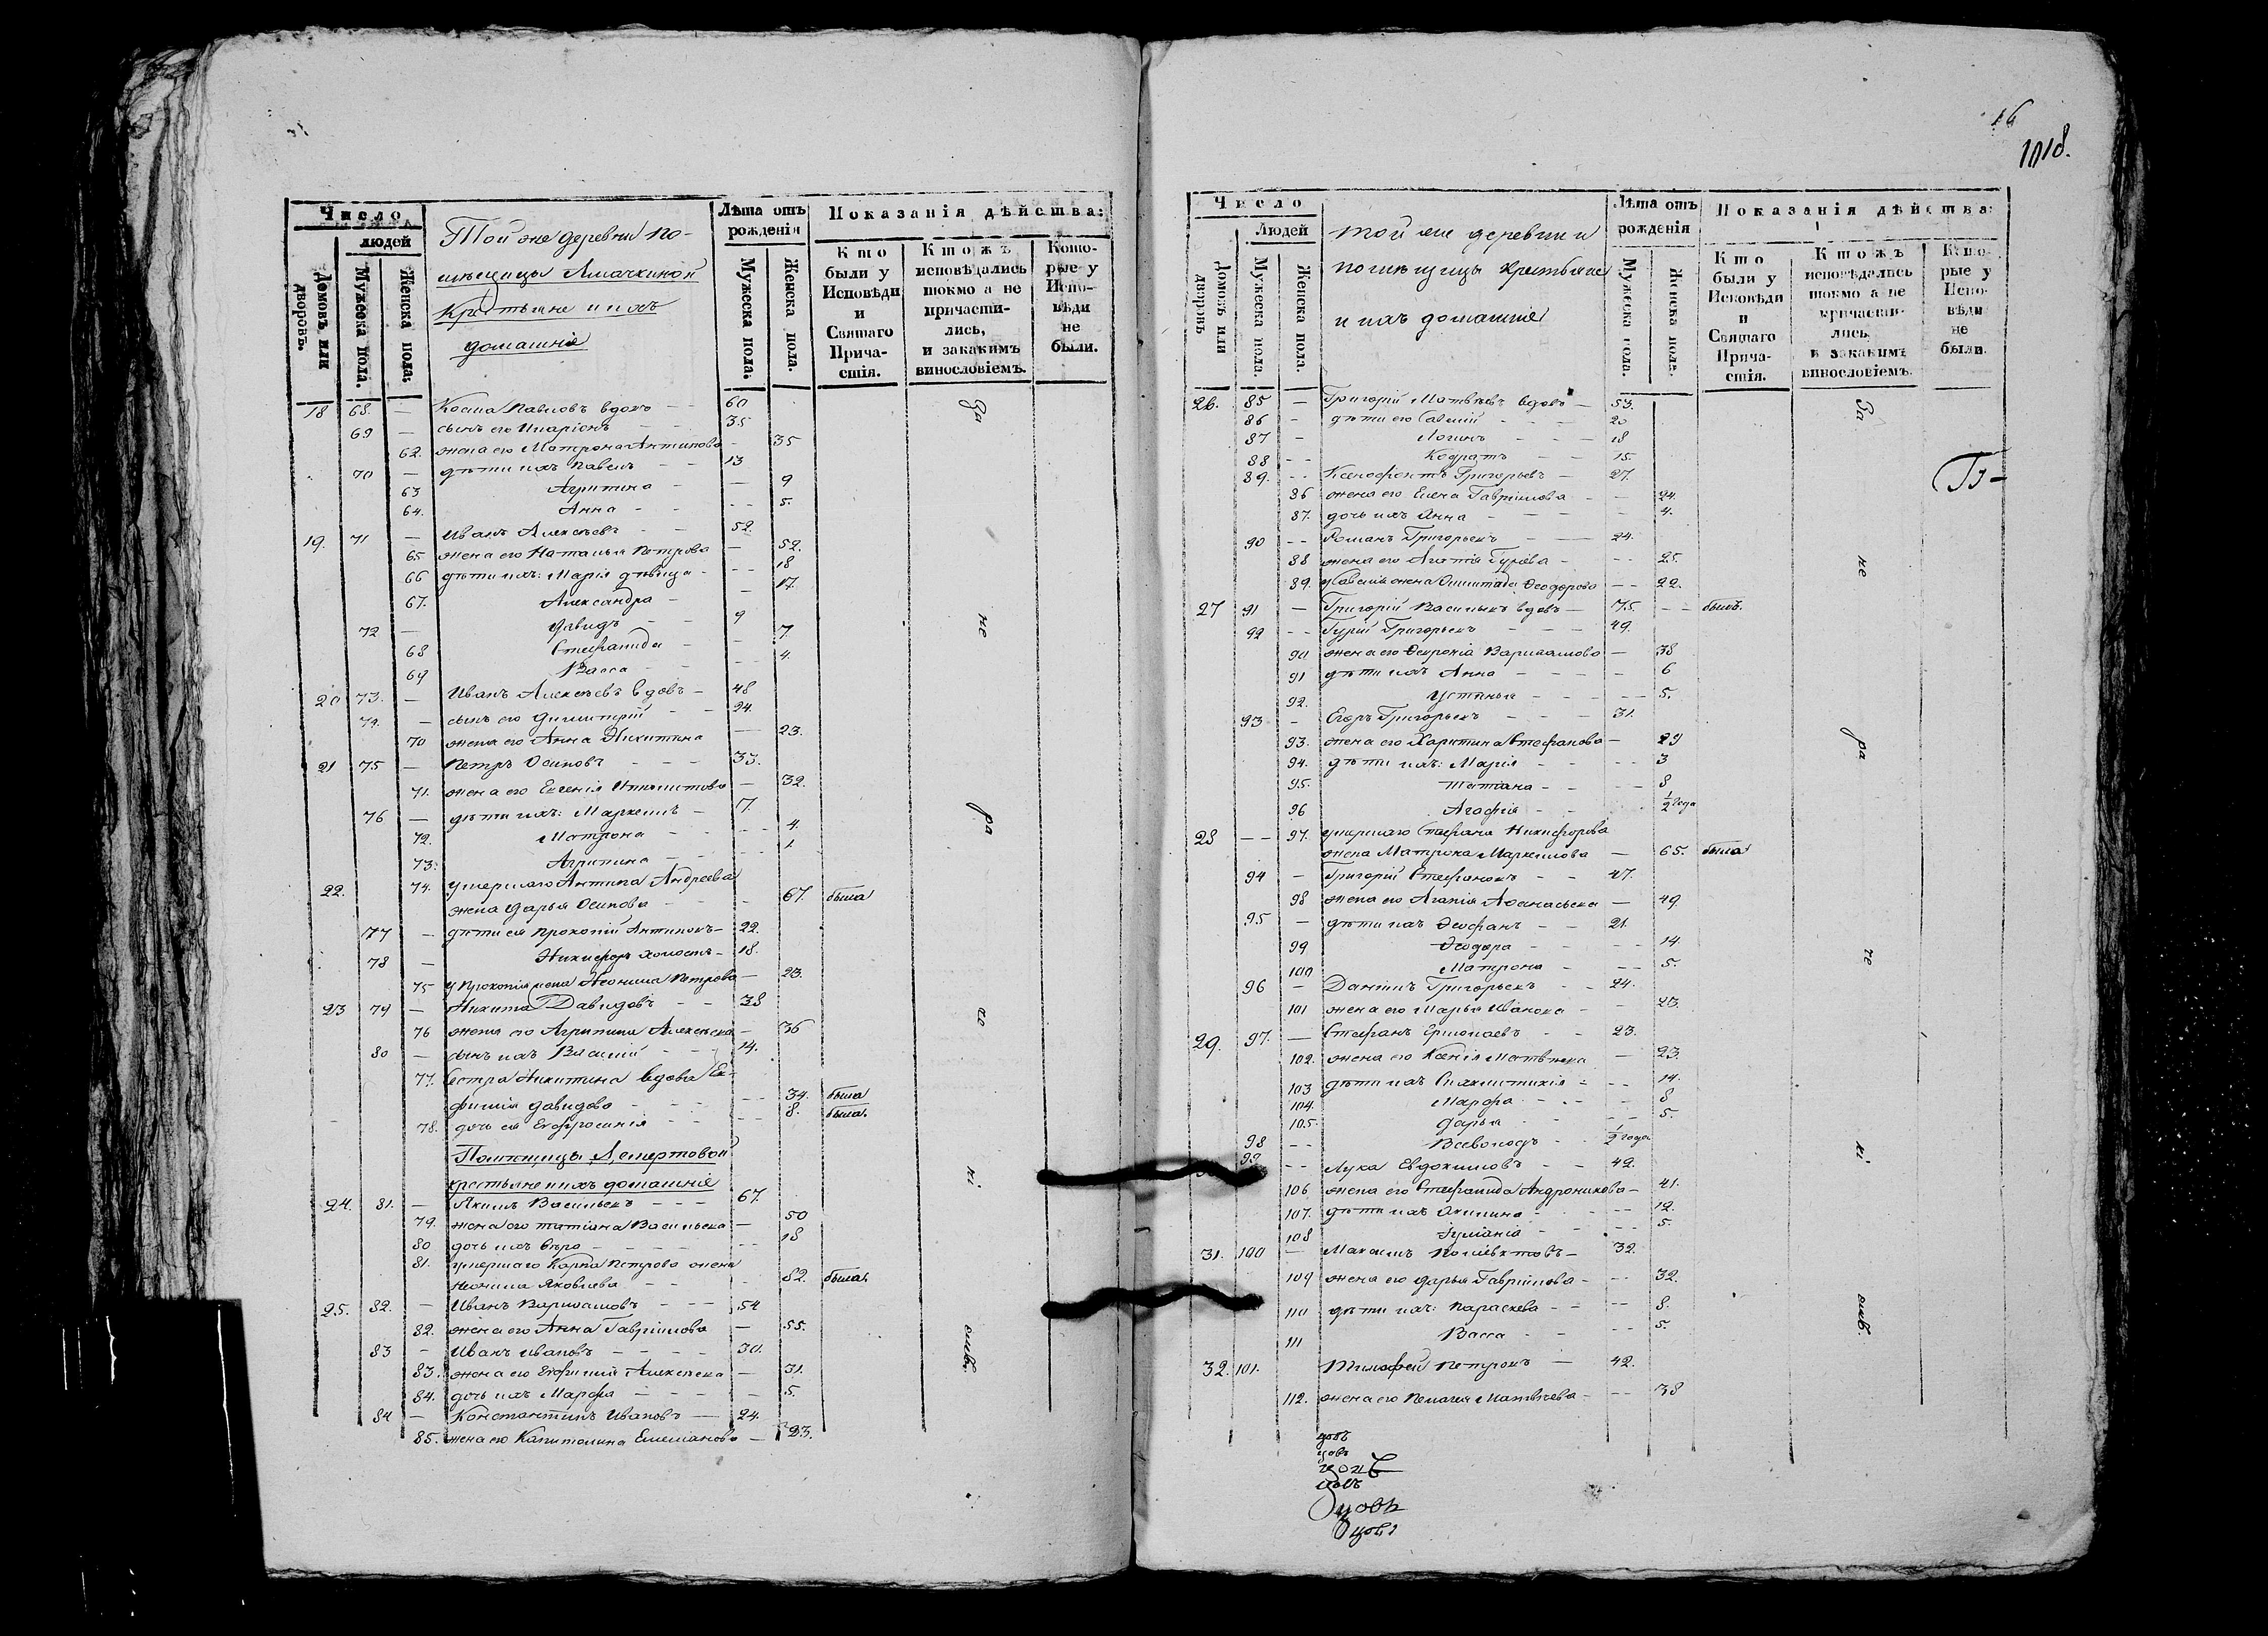 Число
людей
Домовъ, или дворовъ.
Мужеска пола.
Женска пола.
Той же деревни по-
мѣщицы Алмачкиной
Крестьяне и ихъ
домашніе
Лѣта отъ рожденія
Мужеска пола.
Женска пола.
Показанія дѣйства:
Кто были у Исповѣди и Святаго Причастія.
Ктожъ исповѣдались токмо а не причастились, и закакимъ винословіемъ.
Которые у Исповѣди не были.
18 68. — Косма Павловъ вдовъ — 60
69 — сынъ его Иларіонъ 35
62. жена его Матрона Антипова - 35
70 — дѣти ихъ Павелъ 13
63 Агрипина - — 9
64. Анна - - 5.
19. 71 — Иванъ Алексѣевъ 52.
65 жена его Наталья Петрова — 52.
66 дѣти ихъ: Марія дѣвица - 18
67. Александра — 17.
72 — Давидъ 9
68 Стефанида - 7.
69 Васса - 4.
20 73. — Иванъ Алексѣевъ вдовъ — 48
74. — сынъ его Димитрій 24.
70 жена его Анна Никитина — 23.
21 75 — Петръ Осиповъ 33.
71. жена его Евгенія — 32.
76 — дѣти ихъ: Маркеллъ — 7.
72. Матрона 4.
73. Агрипина 1.
22. 74. умершаго Антипа Андреева
жена Дарья Осипова - 67. была
77 — дѣти ея Прокопій Антиповъ — 22.
78 — Никифоръ холостъ — 18.
75 у Прокопія жена Неонила Петрова — 23.
23 79 — Никита Давидовъ 38
76 жена его Агрипина Алексѣева — 36
80 — сынъ ихъ Василій 14.
77. Сестра Никитина вдова Ев-
фимія Давидова 34. была
78. дочь ея Евфросинія 8. была.
Помѣщицы Лемертовой
крестьяне и ихъ домашніе
24. 81. — Якимъ Васильевъ 67.
79. жена его Татіана Васильева — 50
80 дочь ихъ Вѣра 18
81. умершаго Карпа Петрова жена
Неонила Яковлева 82. была.
25. 82. — Иванъ Варлаамовъ 54
82. жена его Анна Гавриілова — 55.
83 — Иванъ Ивановъ 30.
83. жена его Евфимія Алексѣева — 31.
84. дочь ихъ Марфа 5.
84 — Константинъ Ивановъ — 24.
85. жена его Капитолина Емеліанова — 23.
За не ра че ні емъ.
16
1018.
Число
Людей
Домовъ или дворовъ
Мужеска пола.
Женска пола.
той же деревни и
помѣщицы крестьяне
и ихъ домашніе
Лѣта отъ рожденія
Мужеска пола.
Женска пола.
Показанія дѣйства:
Кто были у Исповѣди и Святаго Причастія.
Ктожъ исповѣдались токмо а не причастились, и закакимъ винословіемъ.
Которые у Исповѣди не были.
26. 85 — Григорій Матвѣевъ вдовъ — 53.
86 - дѣти его Савелій 20
87 - Логинъ 18
88 - - Кодратъ 15.
89. - - Ксенофонтъ Григорьевъ — 27.
86 жена его Елена Гавриілова - 24.
87. дочь ихъ Анна 4.
90 - - Романъ Григорьевъ 24.
88 жена его Агапія Гурьева 25.
89. у Савелія жена Ѳеодорова - - 22.
27 91 — Григорій Васильевъ вдовъ — 75. былъ.
92 - - Гурій Григорьевъ 49.
90 жена его Ѳевронія Варлаамова — 38
91 дѣти ихъ Анна 6
92. Устинья 5.
93 - Егоръ Григорьевъ 31.
93. жена его Харитина Стефанова — 29
94. дѣти ихъ: Марія 3
95. Татіана 8
96 Агафія 1/2 года
28 - - 97. умершаго Стефана Никифорова
жена Матрона Маркеллова — 65. была
94 - Григорій Стефановъ 47.
98 жена его Агапія Аѳанасьева — 49.
95 — дѣти ихъ Ѳеофанъ 21.
99 Ѳеодора 14.
100 Матрона 5.
96 — Даніилъ Григорьевъ 24.
101 жена его Марья Иванова 23.
29. 97. — Стефанъ Ермолаевъ 23.
102. жена его Ксенія Матвѣева — 23.
103 дѣти ихъ Синклитикія 14.
104. Марфа 8
105. Дарья 5.
98 - - Всеволодъ 1/2 года
99 - - Лука Евдокимовъ 42.
106 жена его Стефанида Андроникова — 41.
107. дѣти ихъ Акилина 12.
108 Іуліанія 5.
31. 100 — Максимъ Поліевктовъ — 32.
109 жена его Дарья Гавриілова - 32.
110 дѣти ихъ: Параскева 8.
111 Васса 5.
32. 101. Тимофей Петровъ — 42.
112. жена его Пелагея Матвѣева - 38
За не ра че ні емъ.